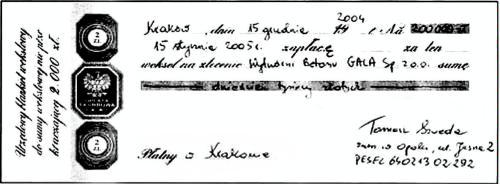 Urzędowy blankiet wekslowy
do sumy wekslowej nie prze-
kraczającej 2.000 zł.
2
ZŁ
OPŁATA
SKARBOWA
2
ZŁ
2004
Kraków, dnia 15 grudnia r. Na 200 000 zł
15 stycznia 2005 r. zapłacę za ten
weksel na zlecenie Wytwórni Betonu GALA Sp. z o.o. sumę
dwieście tysięcy złotych
Płatny w Krakowie
Tomasz
zam. w Opolu, ul. Jasna 2
PESEL 64021302292